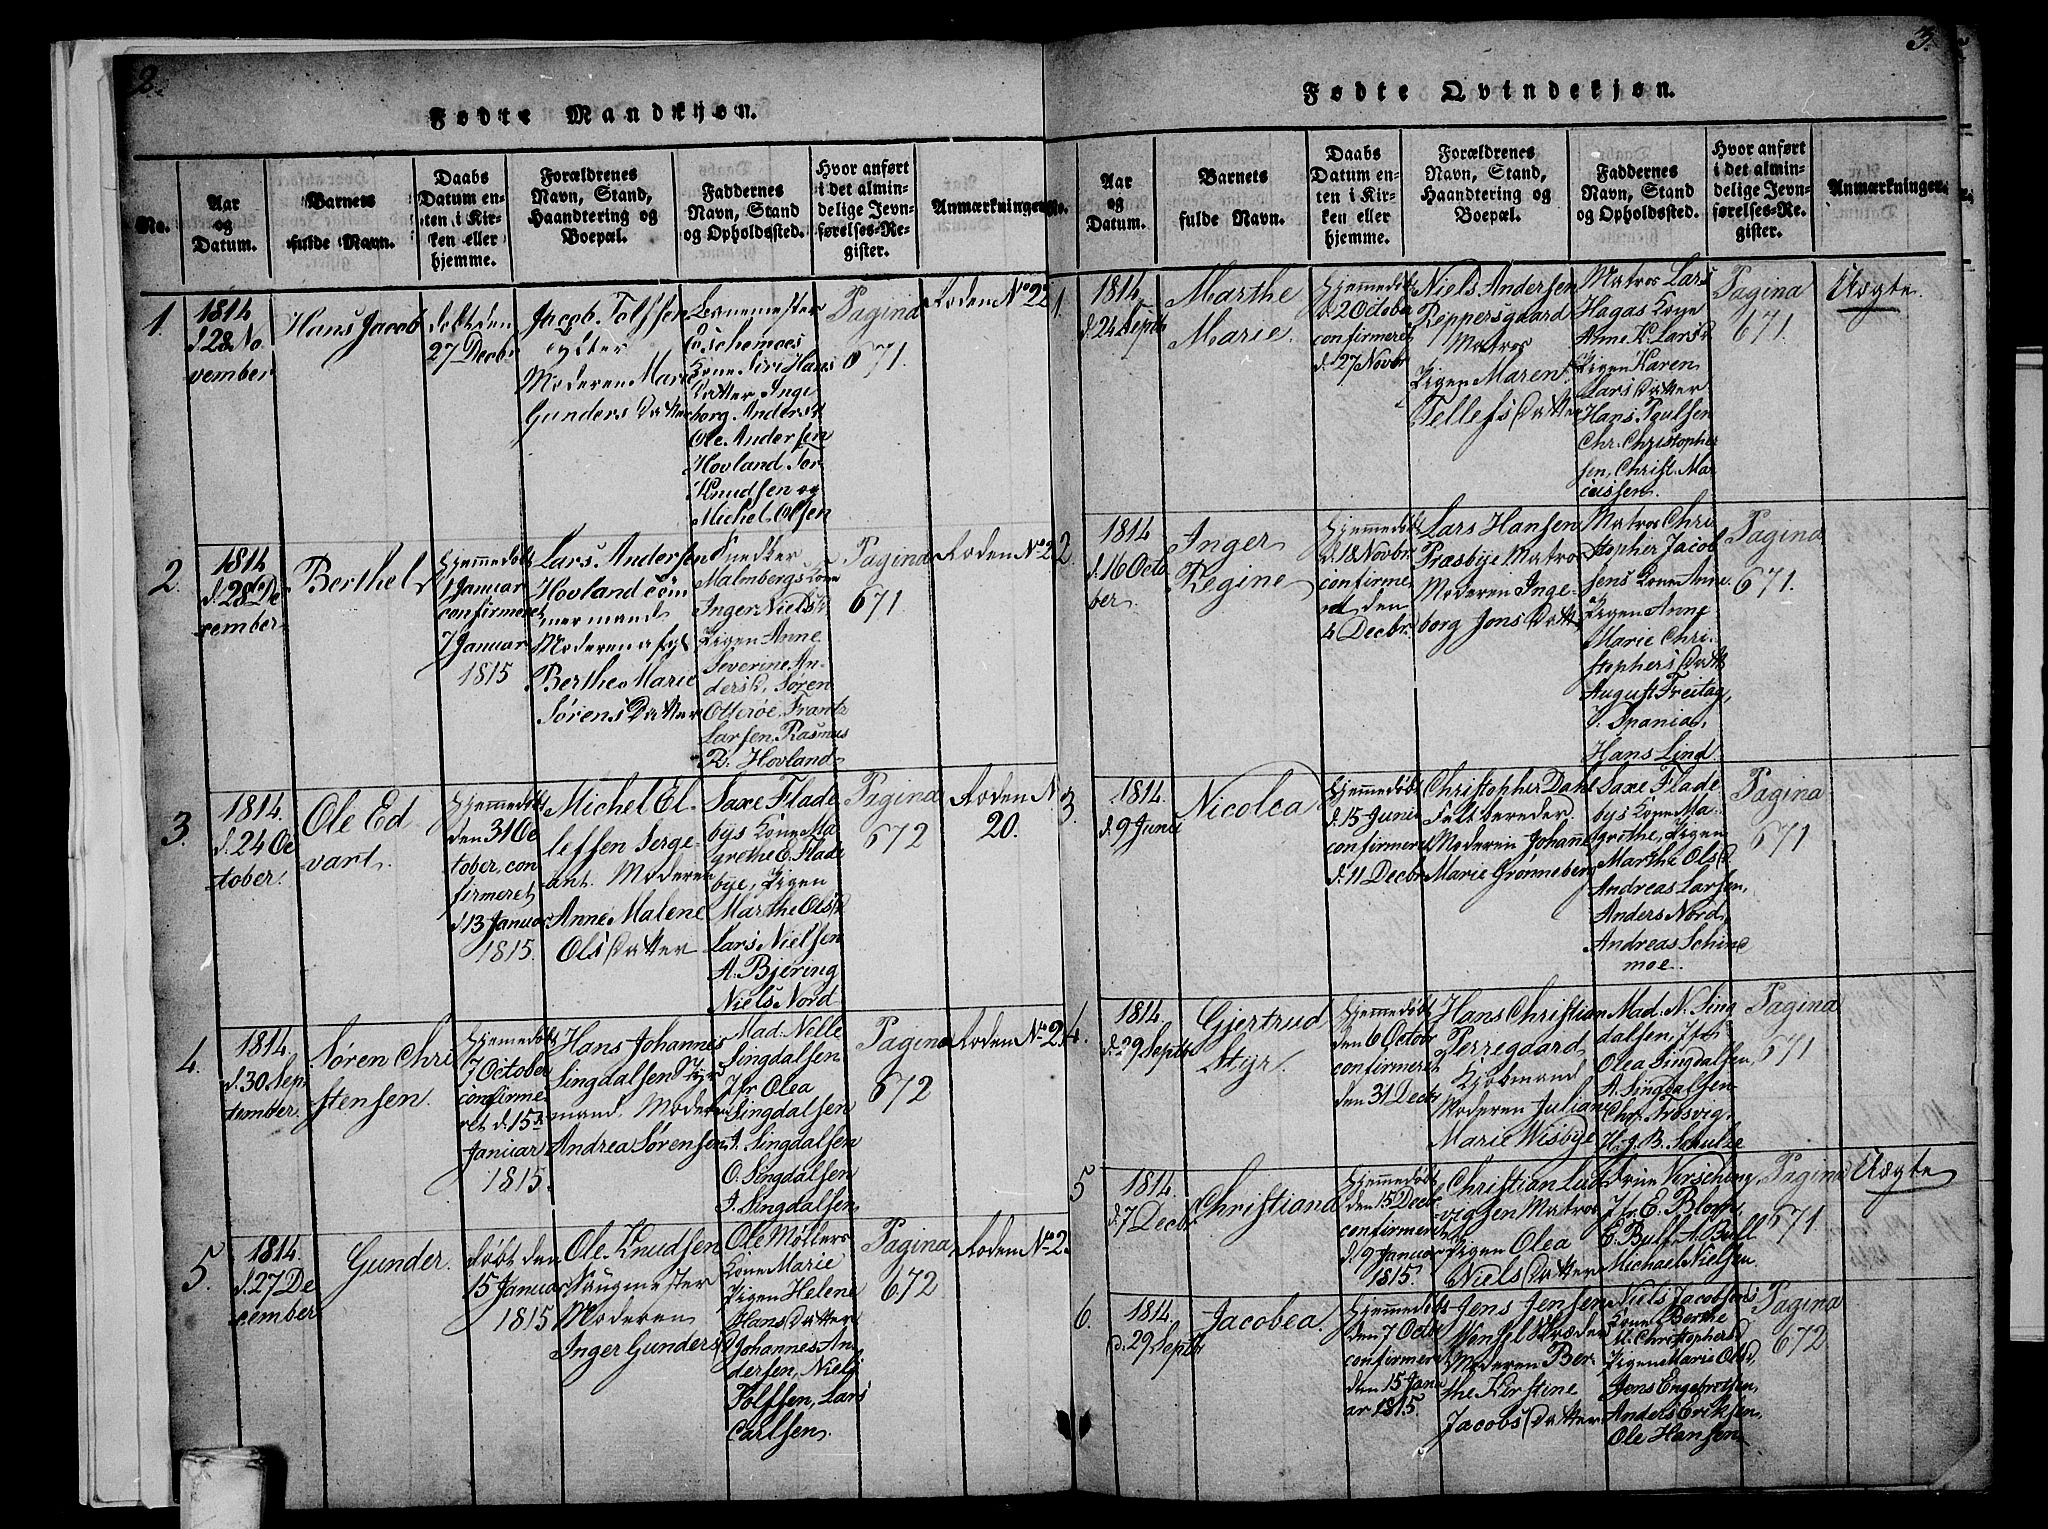 2.
Fødte Mandkjøn.
No.
Aar
og
Datum.
Barnets
fulde Navn.
Daabs
Datum en-
ten i Kir-
ken eller
hjemme.
Forældrenes
Navn, Stand,
Haandtering og
Boepæl.
Faddernes
Navn, Stand
og Opholdssted.
Hvor anført
i det almin-
delige Jevn-
førelses-Re-
gister.
Anmærkninger.
1.
1814
d. 28 No
vember
Hans Jacob
døbt den
27 Decbr
Jacob Tolfsen
Moderen Marie
Gunders Datter
Kone Siri Hans
Datter, Inge
borg Anders D.
Ole Andersen
Hovland, Tor
Knudsen og
Michel Olsen
Pagina
671.
Roden No 22
2.
1814
d. 28 De
cember
Berthel
Hjemmedøbt
1 Januar
confirmeret
7 Januar
1815
Lars Andersen
Hovland Tøm
mermand
Moderen
Berthe Marie
Sørens Datter
Snedker
Malmbergs Kone
Inger Niels D.
Pigen Anne
Severine An-
ders D., Søren
Otterøe, Frantz
Larsen, Rasmus
R. Hovland
Pagina
671
Roden No 22
3.
1814.
d. 24 Oc
tober.
Ole Ed
vart.
Hjemmedøbt
den 31 Oc
tober, con
firmeret
d. 13 Januar
1815.
Michel El
lefsen Serge-
ant. Moderen
Anne Malene
Ols Datter
Saxe Flade
byes Kone Ma
grethe E. Flade
bye, Pigen
Marthe Ols D.
Lars Nielsen
A. Bjering
Niels Nord
Pagina
672
Roden N
20.
4.
1814.
d. 30 Sep
tember.
Søren Chri
stensen.
Hjemmedøbt
7 October
confirme
ret d. 15
Januar
1815.
Hans Johannes
Singdalsen Styr
mand. Moderen
Andrea Sørensen
Mad. Nelle
Singdalsen
Jfr Olea
Singdalsen
A. Singdalsen
O. Singdalsen
J. Singdalsen
Pagina
672
Roden No 2
5.
1814.
d. 27 De
cember
Gunder.
døbt den
15 Januar
1815
Ole Knudsen
Saugmester
Moderen
Inger Gunders D
Ole Møllers
Kone Marie
Pigen Helene
Hans Datter
Johannes An
dersen, Niels
Tolfsen, Lars
Carlsen.
Pagina
672
Roden No 2
3.
Fødte Qvindekjøn.
No.
Aar
og
Datum.
Barnets
fulde Navn.
Daabs
Datum en-
ten i Kir-
ken eller
hjemme.
Forældrenes
Navn, Stand,
Haandtering og
Boepæl.
Faddernes
Navn, Stand
og Opholdssted.
Hvor anført
i det almin-
delige Jevn-
førelses-Re-
gister.
Anmærkninger.
1.
1814
d. 24 Septb
Marthe
Marie.
Hjemmedøbt
d. 2 October
confirmeret
d. 27 Novbr
Niels Andersen
Reppersgaard
Matros
Pigen Maren
Tellefs Datter
Matros Lars
Hagas Kone
Anne K. Lars D.
Pigen Karen
Lars Datter
Hans Poulsen
Chr. Christopher
sen, Christ. Mar
Pagina
671.
Uægte.
2
1814
d. 16 Octo
ber.
Inger
Regine
Hjemmedøbt
d. 18 Novbr.
confirme
ret den
4 Decbr.
Lars Hansen
Præsbye Matros
Moderen Inge
borg Jons Datter
Matros Chri
stopher Jacob
sens Kone Anne
Pigen Anne
Marie Chri-
stophers Datt
August Freitag,
J. Spania,
Hans Lind
Pagina
671.
3.
1814.
d. 9 Junii
Nicolea
Hjemmedøbt
d. 15 Junii
confirmeret
d. 11 Decbr
Christopher Dahl
Feltbereder.
Moderen Johanne
Marie Grønneberg
Saxe Flade
byes Kone Ma-
grethe, Pigen
Marthe Ols D.
Andreas Larsen,
Anders Nord,
Andreas Schine
moe.
Pagina
671
4.
1814.
d. 29 Septb
Gjertrud
Styr.
Hjemmedøbt
den 6 Octobr
confirmeret
den 31 Decbr
Hans Christian
Perregaard
Kjøbmand
Moderen Juliane
Marie Wisbye
Mad. N. Sing
dalsen, Jfr
Olea Singdalsen,
A. Singdalsen
H. J. B. Schulze
Pagina
671
5
1814.
d. 7 Decbr
Christiana
Hjemmedøbt
den 15 Decbr
confirmeret
d. 9 Januar
1815.
Christian Lud
vigsen Matros
Pigen Olea
Niels Datter
Jfr. E. Blom,
E. Bull A. Bull
Michael Nielsen
Pagina
671.
Uægte
6.
1814.
d. 29 Septb
Jacobea.
Hjemmedøbt
den 7 Octbr
confirmeret
den 15 Janu
ar 1815.
Jens Jensen
Wensel
Moderen Ber-
the Kirstine
Jacobs Datter
Niels Jacobsens
Kone Berthe
M. Christophers D
Pigen Marie Ols D,
Jens Engebretsen,
Anders Eriksen,
Ole Hansen
Pagina
672